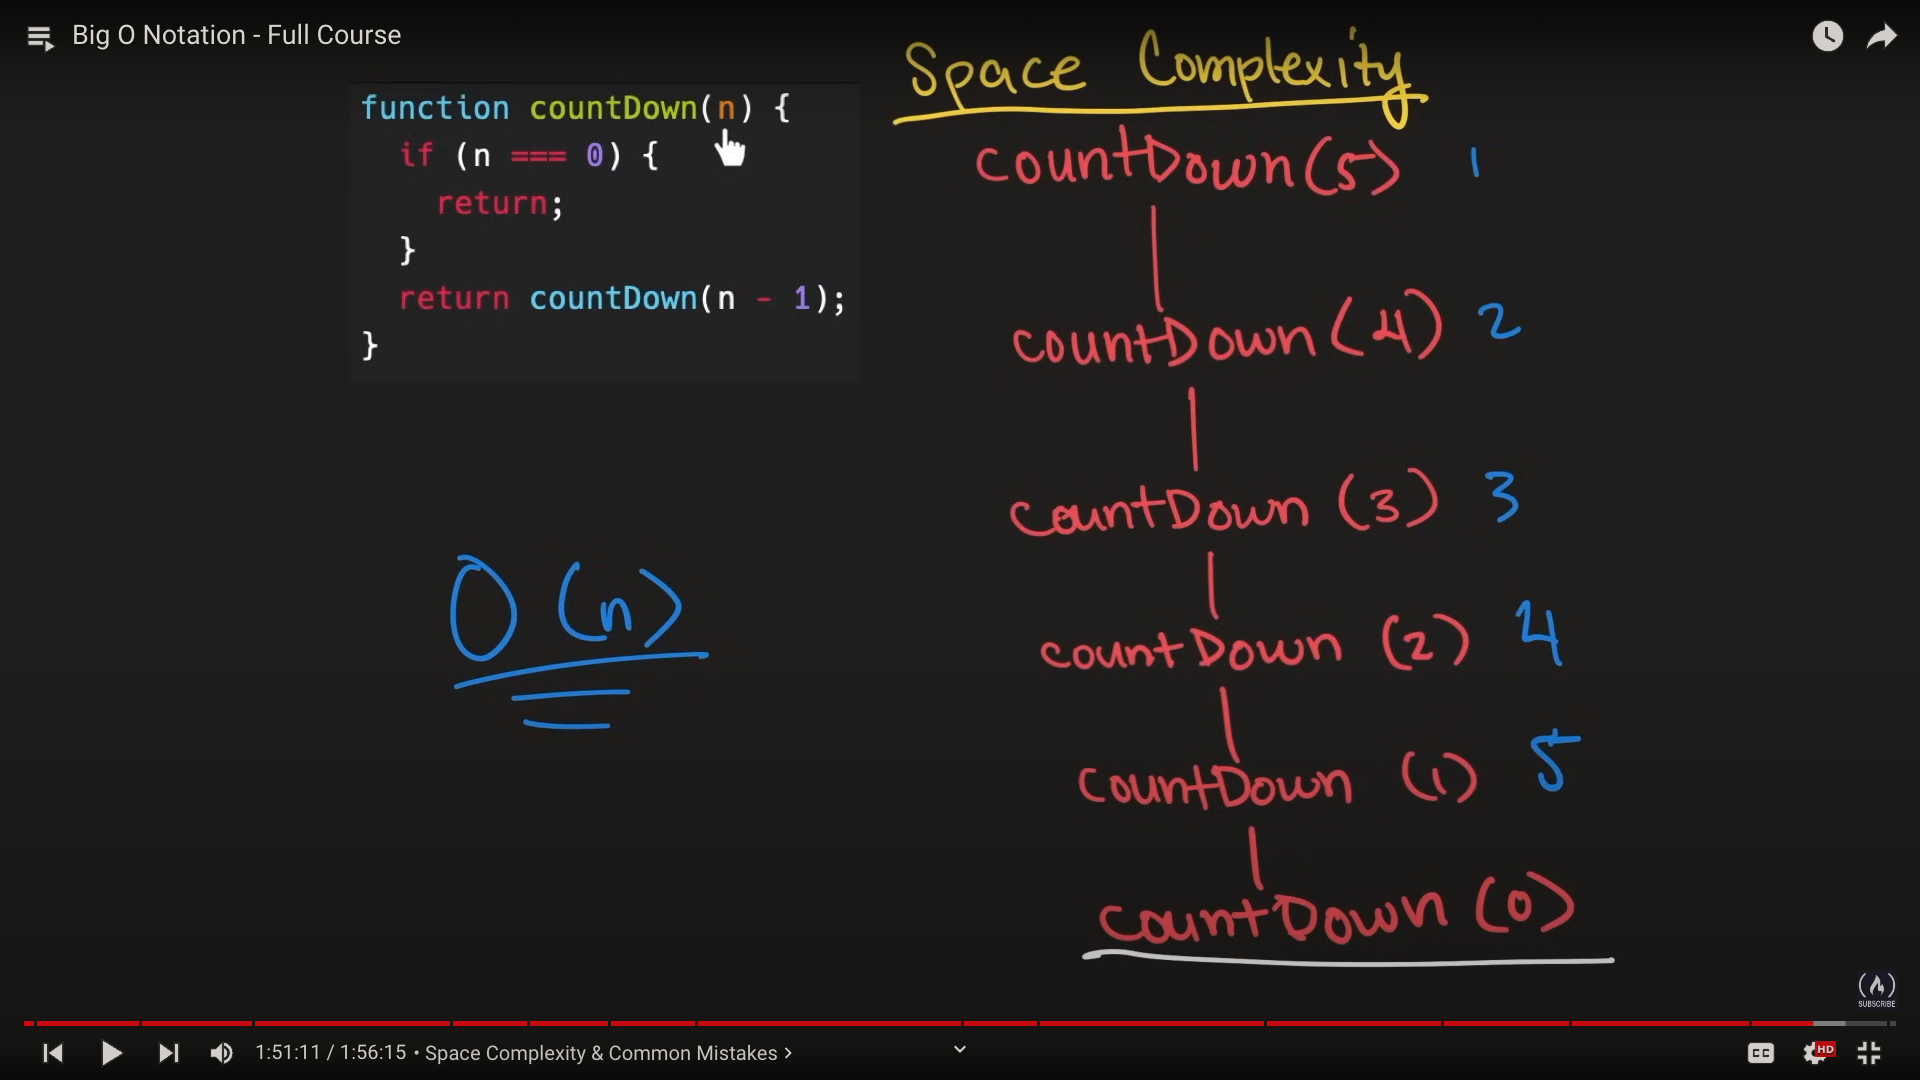 Big O Notation - Full Course
Space Complexity
function countDown(n) {
if (n === 0) {
return;
}
return countDown(n - 1);
}
countDown(5) 1
countDown (4) 2
countDown (3) 3
O(n)
countDown (2) 4
countDown (1) 5
countDown (0)
SUBSCRIBE
1:51:11 / 1:56:15 • Space Complexity & Common Mistakes >
CC
HD